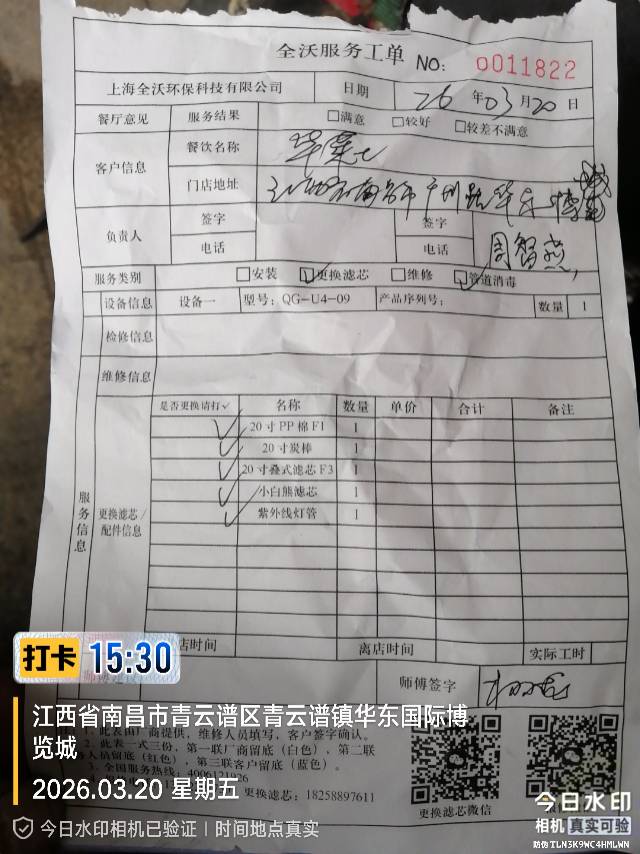 全沃服务工单 NO: 0011822
上海全沃环保科技有限公司 日期 26 年 03 月 20 日
餐厅意见 服务结果 □满意 □较好 □较差不满意
客户信息 餐饮名称 华莱士
门店地址 江西省南昌市广州路华东博览城
负责人 签字 签字 周智燕
电话 电话
服务类别 □安装 ☑更换滤芯 □维修 ☑管道消毒
设备信息 设备一 型号: QG-U4-09 产品序列号: 数量 1
检修信息
维修信息
服务信息
更换滤芯/配件信息
是否更换请打✓ 名称 数量 单价 合计 备注
✓ 20寸PP棉F1 1
✓ 20寸炭棒 1
✓ 20寸叠式滤芯F3 1
✓ 小白熊滤芯 1
✓ 紫外线灯管 1
店时间 离店时间 实际工时
师傅签字
打卡 15:30
江西省南昌市青云谱区青云谱镇华东国际博览城
2026.03.20 星期五
1、此表由厂商提供,维修人员填写,客户签字确认。
2、此表一式三份,第一联厂商留底(白色),第二联
人员留底(红色),第三联客户留底(蓝色)。
3、全国服务热线: 4006121926
更换滤芯: 18258897611
更换滤芯微信
今日水印相机已验证 | 时间地点真实
今日水印
相机 真实可验
防伪 TLN3K9WC4HMLWN